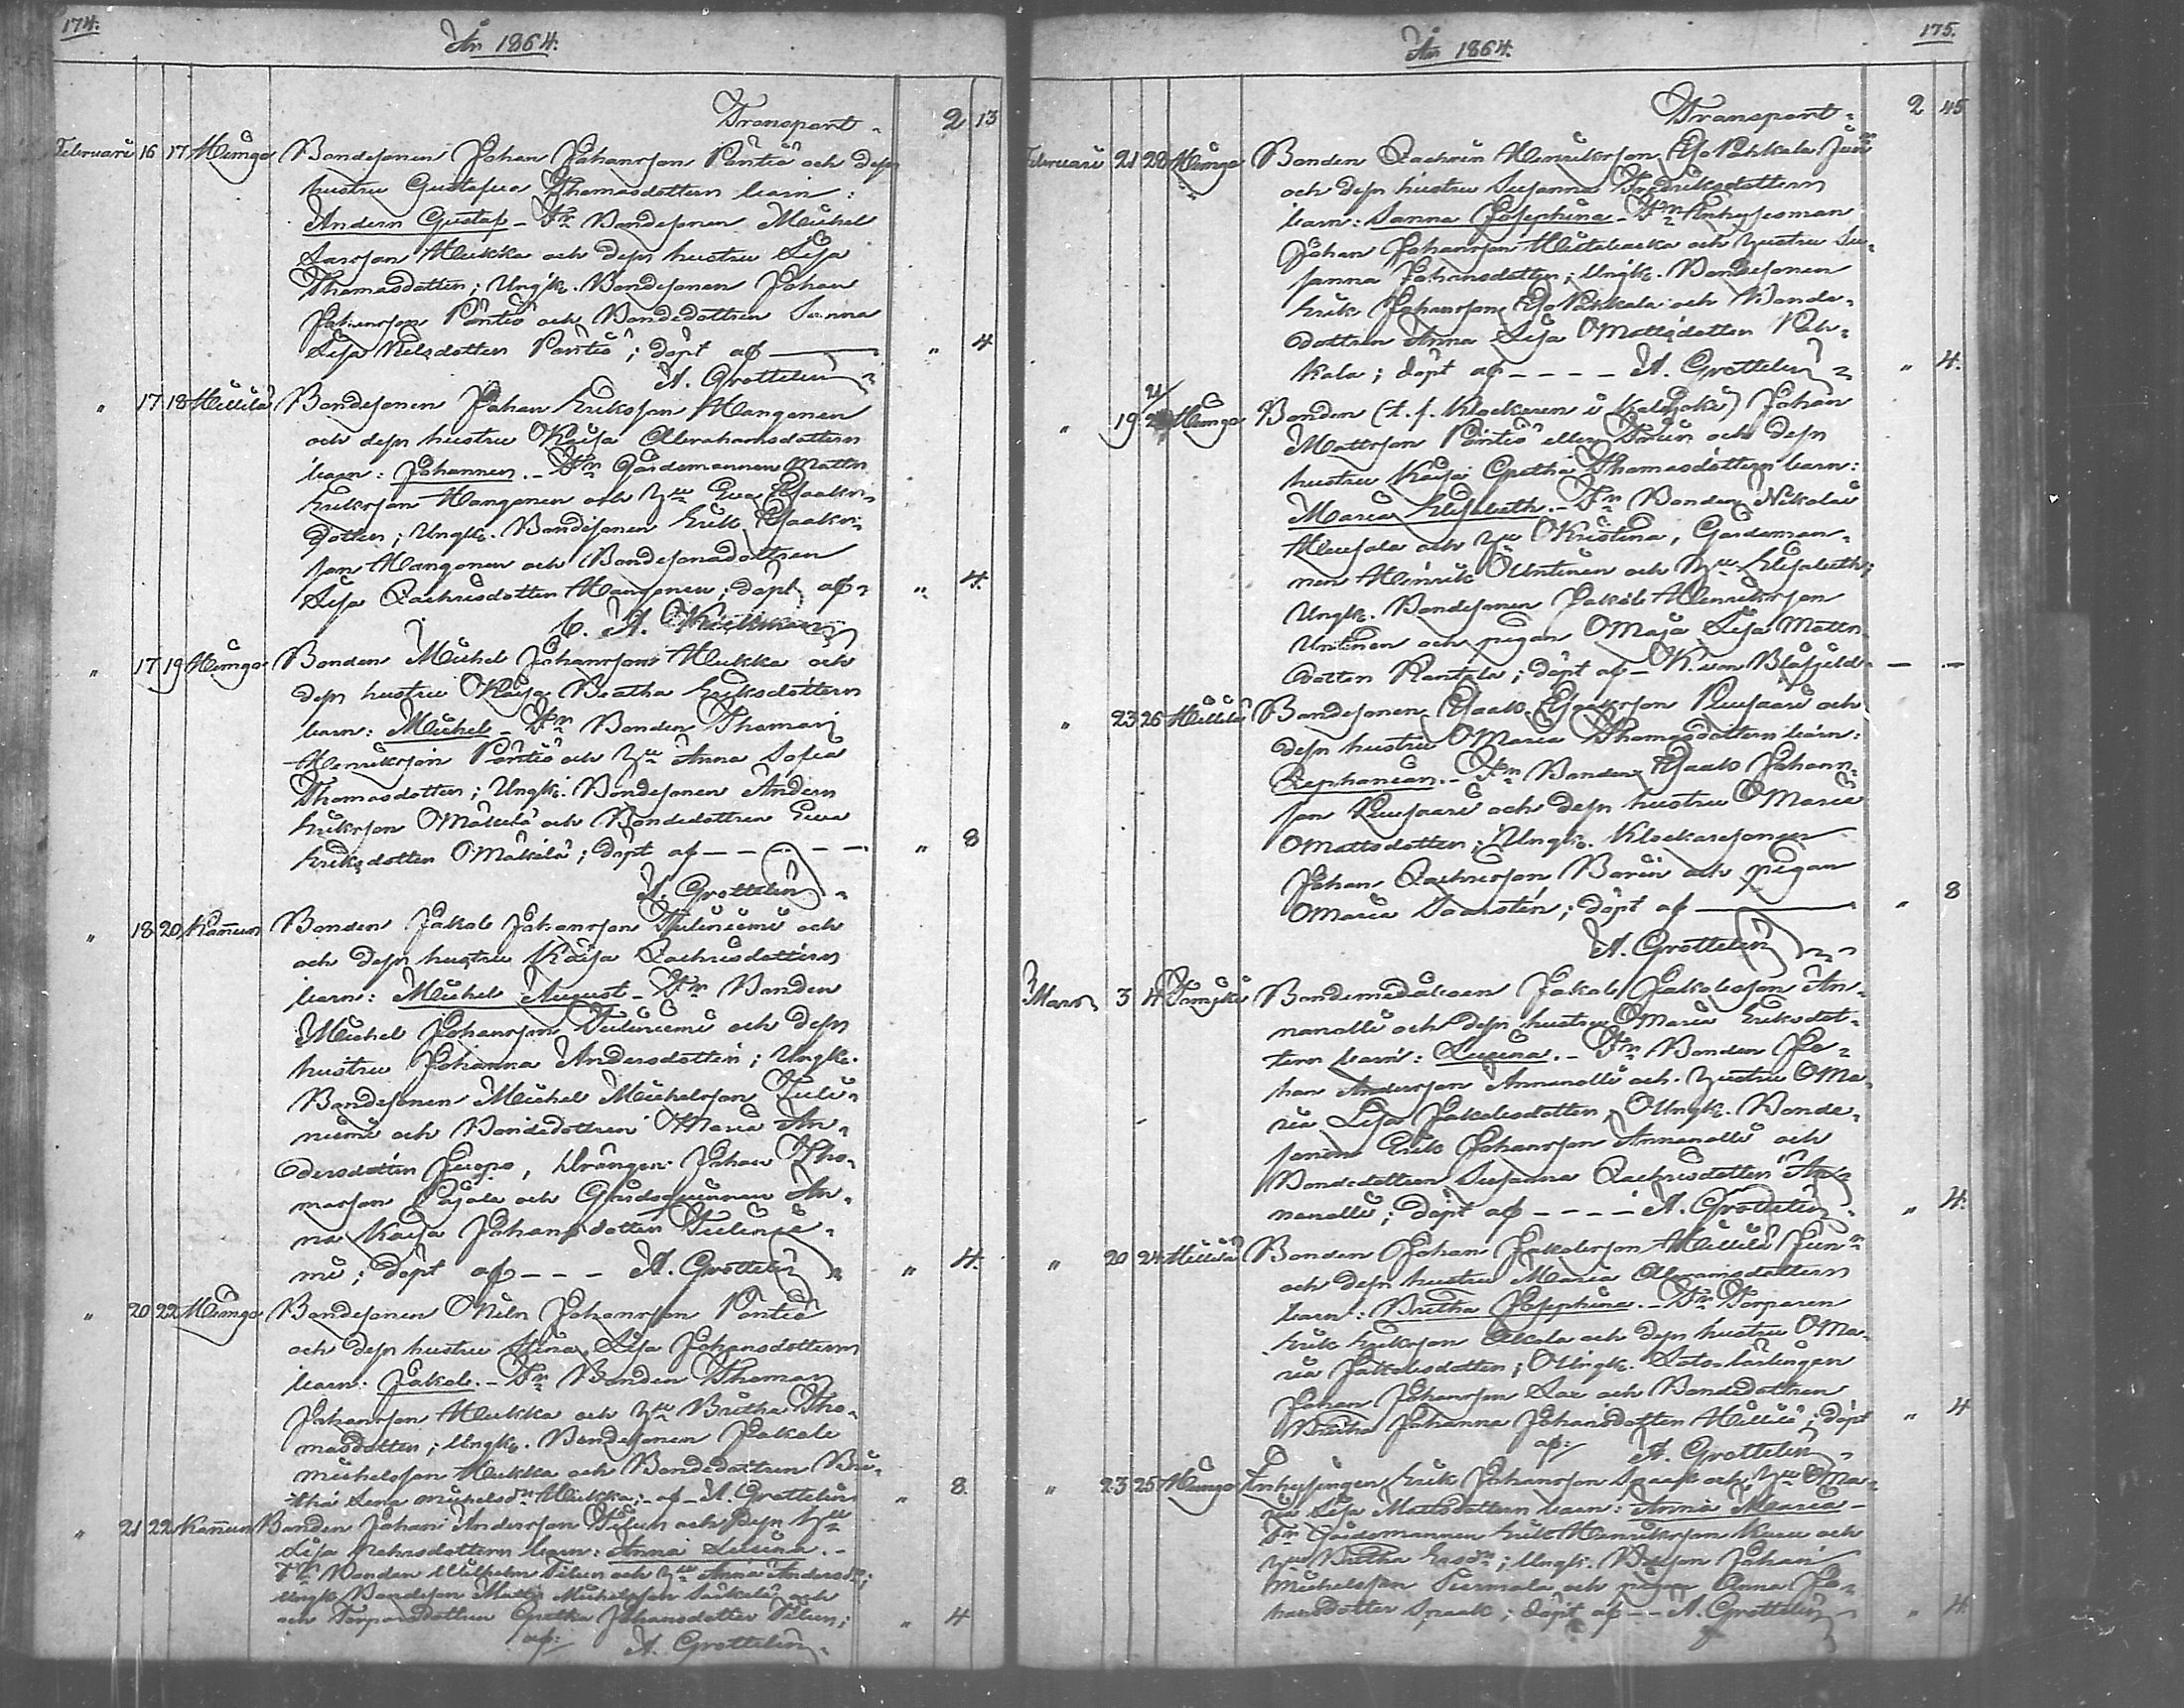 174.
År 1864.
Transport - 2 13
Februari 16 17 Himga Bondesonen Johan Johansson Pöntiö och dess
hustru Gustafva Thomasdotters barn:
Anders Gustaf - Fr. Bondesonen Michel
Larsson Hukka och dess hustru Lisa
Thomasdotter; Ungk. Bondesonen Johan
Johansson Pöntiö och Bondedottren Sanna
Lisa Nilsdotter Pöntiö; döpt af — " 4
A. Grottelin
" 17 18 Hillilä Bondesonen Johan Eriksson Hanganen
och dess hustru Kaisa Abrahamsdotters
barn: Johannes. - Fr. Gårdsmannen Matts
Eriksson Hanganen och Hu Eva Isaaks-
dotter; Ungk. Bondesonen Erik Isaaks-
son Hanganen och Bondesonadottren
Lisa Zachrisdotter Hanganen; döpt af " 4.
C. A.
" 17 19 Himga Bonden Michel Johansson Hukka och
dess hustru Kaisa Beatha Eriksdotters
barn: Michel - Fr. Bonden Thomas
Henriksson Pöntiö och Hu Anna Sofia
Thomasdotter; Ungk. Bondesonen Anders
Eriksson Mäkelä och Bondedottren Eva
Eriksdotter Mäkelä; döpt af - - - - - " 8
A. Grottelin
" 18 20 Kannus Bonden Jakob Johansson Tuliniemi och
och dess hustru Kaisa Zachrisdotters
barn: Michel August - Fr. Bonden
Michel Johansson Tuliniemi och dess
hustru Johanna Andersdotter; Ungk.
Bondesonen Michel Michelsson Tuli-
niemi och Bondedottren Maria An-
dersdotter Juopo, drängen Johan Tho-
masson Pajala och Gårdsqvinnan An-
na Kaisa Johansdotter Tulinie-
mi; döpt af - - - A. Grottelin " 4.
" 20 22 Himga Bondesonen Nils Johansson Pöntiö
och dess hustru Stina Lisa Johansdotters
barn: Jakob. - Fr. Bonden Thomas
Johansson Hukka och Hu Britha Tho-
masdotter; Ungk. Bondesonen Jakob
Michelsson Hukka och Bondedottren Bri-
tha Lena Michelsdr Hukka; af A. Grottelin " 8
" 21 22 Kannus Bonden Johan Andersson Tilus och dess Hu
Lisa dotters barn: Anna Lovisa. -
Fr. Bonden Wilhelm Tilus och Hu Anna Andersdr;
Ungk Bondeson Matts Michelsson och
och Torparedottren Gretha Johansdotter Tilus; " 4
af: A. Grottelin
175.
År 1864.
Transport - 2 45
Februari 21 22 Himga Bonden Zachris Henriksson Yo Pahkala Jun
och dess hustru Susanna Fredriksdotters
barn: Sanna Josephina - Fr. Inhysesman
Johan Johansson Hietabacka och hustru Su-
sanna Johansdotter; Ungk. Bondesonen
Erik Johansson Yo Pahkala och Bonde-
dottren Anna Lisa Mattsdotter Pah-
kala; döpt af - - - - A. Grottelin " 4.
" 19 21/ Himga Bonden (t. f. Klockaren i Kalajoki) Johan
Mattsson Pöntiö eller och dess
hustru Kaisa Gretha Thomasdotters barn:
Maria Elisabeth. - Fr. Bonden Nikolai
och Hu Kristina, Gårdsman-
nen Henrik Untinen och Hu Elisabeth;
Ungk. Bondesonen Jakob Henriksson
Untinen och pigan Maja Lisa Matts-
dotter Rantala; döpt af K. von Blåfjeld — —
" 23 26 Hillilä Bondesonen Isaak Isaaksson Ruusaari och
dess hustru Maria Thomasdotters barn:
Zephanias. - Fr. Bonden Isaak Johans-
son Ruusaari och dess hustru Maria
Mattsdotter; Ungk. Klockaresonen
Johan Zachrisson Borin och pigan
Maria Saarsten; döpt af — " 8
A. Grottelin
Mars 3 4 Bondemedåboen Jakob Jakobsson An-
nanolli och dess hustru Maria Eriksdot-
ters barn: Lovina. - Fr. Bonden Jo-
han Andersson Annanolli och hustru Ma-
ria Lisa Jakobsdotter, Ungk. Bonde-
sonen Erik Johansson Annanolli och
Bondedottren Susanna Zachrisdotter An-
nanolli; döpt af - - - - A. Grottelin " 4.
" 20 24 Hillilä Bonden Johan Jakobsson Hillilä Jun
och dess hustru Maria Abramsdotters
barn: Britha Josephina. - Fr. Torparen
Erik Eriksson Alkala och dess hustru Ma-
ria Jakobsdotter; Ungk. Lotslärlingen
Johan Johansson Sax och Bondedottren
Britha Johanna Johansdotter Hillilä; döpt " 4
af: A. Grottelin
" 23 25 Himga Inhysingen Erik Johansson Spaak och Hu Ma-
ria Lisa Mattsdotters barn: Anna Maria -
Fr. Gårdsmannen Erik Henriksson Kuru och
Hu Britha Ersdr; Ungk. Bdeson Johan
Michelsson Purmala och pigan Anna Jo-
hansdotter Spaak; döpt af - - A. Grottelin " 4